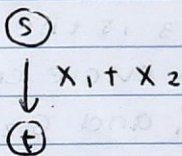 S
x₁ + x₂
t